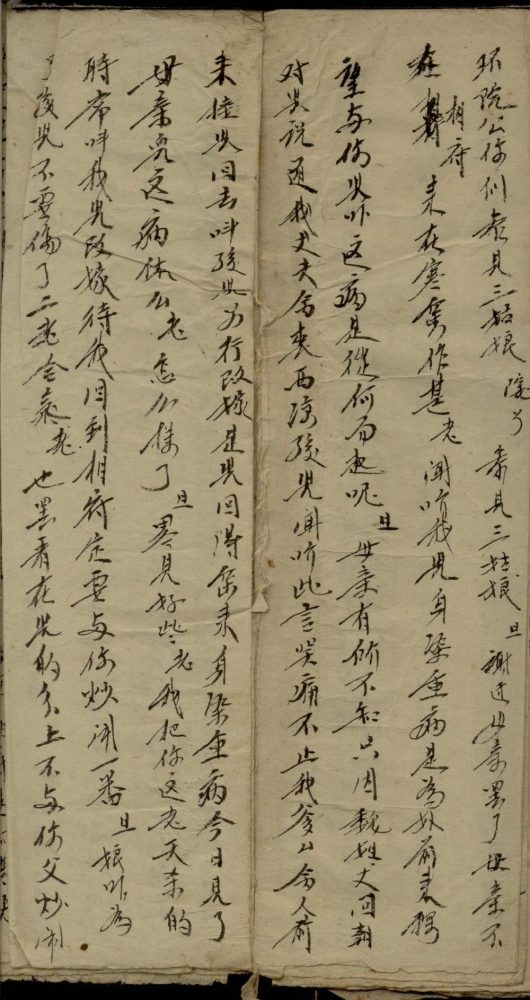 环院公你们参见三姑娘 院子 参见三姑娘 旦 谢过母亲罢了母亲不
在相府来在寒窑作甚 老 闻听我儿身染重病是为母前来探
望与你儿吓这病是从何而起呢 旦 母亲有所不知只因魏姓丈回朝
对儿说道我丈夫命丧西凉孩儿闻听此言哭痛不止我爹爹命人前
来接儿回去叫孩儿另行改嫁是儿回得窑来身染重病今日见了
母亲儿这病体么 老 怎么样了 旦 略见好些 老 我把你这老天杀的
时常叫我儿改嫁待我回到相府定要与你炒闹一番 旦 娘吓为
了孩儿不要伤了二老合气 老 也罢看在儿的分上不与你父炒闹